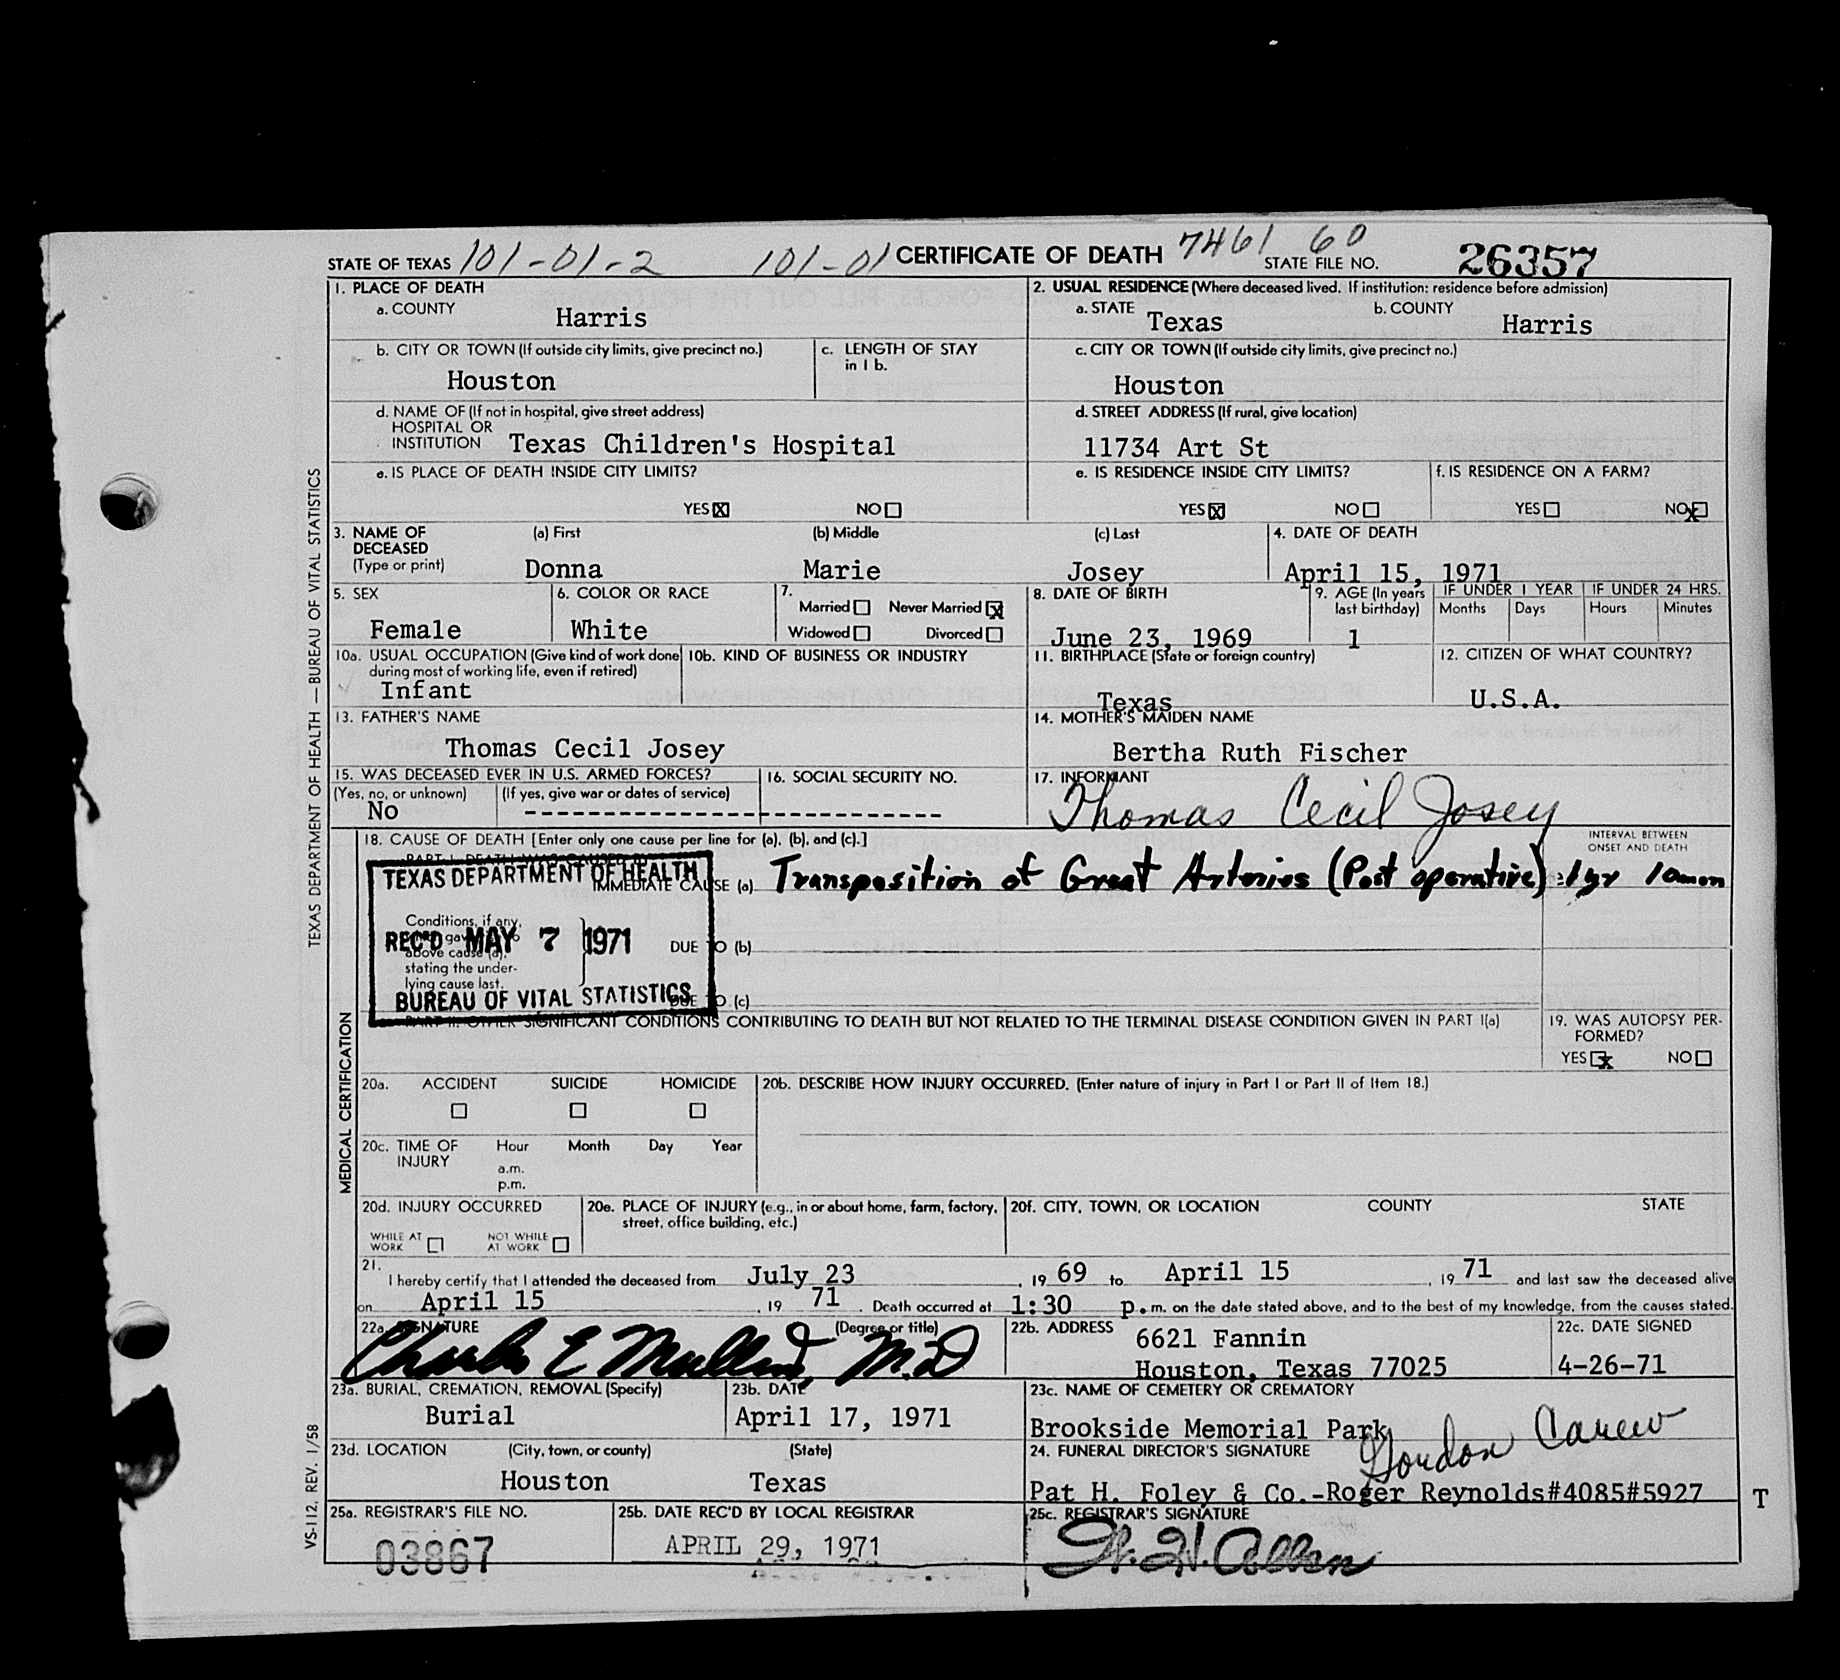 STATE OF TEXAS 101-01-2 101-01 CERTIFICATE OF DEATH 7461 60 STATE FILE NO. 26357
1. PLACE OF DEATH
a. COUNTY Harris
2. USUAL RESIDENCE (Where deceased lived. If institution: residence before admission)
a. STATE Texas b. COUNTY Harris
b. CITY OR TOWN (If outside city limits, give precinct no.) Houston
c. LENGTH OF STAY in 1 b.
c. CITY OR TOWN (If outside city limits, give precinct no.) Houston
d. NAME OF (If not in hospital, give street address)
HOSPITAL OR
INSTITUTION Texas Children's Hospital
d. STREET ADDRESS (If rural, give location)
11734 Art St
e. IS PLACE OF DEATH INSIDE CITY LIMITS?
YES X NO
e. IS RESIDENCE INSIDE CITY LIMITS?
YES X NO
f. IS RESIDENCE ON A FARM?
YES NO X
3. NAME OF DECEASED (Type or print)
(a) First Donna (b) Middle Marie (c) Last Josey
4. DATE OF DEATH
April 15, 1971
5. SEX Female
6. COLOR OR RACE White
7. Married Never Married X
Widowed Divorced
8. DATE OF BIRTH June 23, 1969
9. AGE (In years last birthday) 1
IF UNDER 1 YEAR Months Days
IF UNDER 24 HRS. Hours Minutes
10a. USUAL OCCUPATION (Give kind of work done during most of working life, even if retired)
Infant
10b. KIND OF BUSINESS OR INDUSTRY
11. BIRTHPLACE (State or foreign country)
Texas
12. CITIZEN OF WHAT COUNTRY?
U.S.A.
13. FATHER'S NAME
Thomas Cecil Josey
14. MOTHER'S MAIDEN NAME
Bertha Ruth Fischer
15. WAS DECEASED EVER IN U.S. ARMED FORCES?
(Yes, no, or unknown) (If yes, give war or dates of service)
No ---------------------------
16. SOCIAL SECURITY NO.
17. INFORMANT
Thomas Cecil Josey
18. CAUSE OF DEATH [Enter only one cause per line for (a), (b), and (c).]
INTERVAL BETWEEN ONSET AND DEATH
PART I. DEATH WAS CAUSED BY:
IMMEDIATE CAUSE (a) Transposition of Great Arteries (Post operative) 1yr 10mon
TEXAS DEPARTMENT OF HEALTH
REC'D MAY 7 1971
BUREAU OF VITAL STATISTICS
Conditions, if any,
which gave rise to
above cause (a),
stating the under-
lying cause last.
DUE TO (b)
DUE TO (c)
PART II. OTHER SIGNIFICANT CONDITIONS CONTRIBUTING TO DEATH BUT NOT RELATED TO THE TERMINAL DISEASE CONDITION GIVEN IN PART I(a)
19. WAS AUTOPSY PER-
FORMED?
YES X NO
20a. ACCIDENT SUICIDE HOMICIDE
20b. DESCRIBE HOW INJURY OCCURRED. (Enter nature of injury in Part I or Part II of Item 18.)
20c. TIME OF INJURY Hour Month Day Year
a.m.
p.m.
20d. INJURY OCCURRED
WHILE AT WORK NOT WHILE AT WORK
20e. PLACE OF INJURY (e.g., in or about home, farm, factory, street, office building, etc.)
20f. CITY, TOWN, OR LOCATION COUNTY STATE
21. I hereby certify that I attended the deceased from July 23, 19 69 to April 15, 19 71 and last saw the deceased alive
on April 15, 19 71. Death occurred at 1:30 p.m. on the date stated above, and to the best of my knowledge, from the causes stated.
22a. SIGNATURE (Degree or title)
Charles E Mullins, M.D
22b. ADDRESS 6621 Fannin
Houston, Texas 77025
22c. DATE SIGNED
4-26-71
23a. BURIAL, CREMATION, REMOVAL (Specify)
Burial
23b. DATE
April 17, 1971
23c. NAME OF CEMETERY OR CREMATORY
Brookside Memorial Park
23d. LOCATION (City, town, or county) (State)
Houston Texas
24. FUNERAL DIRECTOR'S SIGNATURE
Gordon Carew
Pat H. Foley & Co.-Roger Reynolds#4085#5927
T
25a. REGISTRAR'S FILE NO.
03867
25b. DATE REC'D BY LOCAL REGISTRAR
APRIL 29, 1971
25c. REGISTRAR'S SIGNATURE
W. H. Allen
TEXAS DEPARTMENT OF HEALTH — BUREAU OF VITAL STATISTICS
MEDICAL CERTIFICATION
VS-112, REV. 1/58